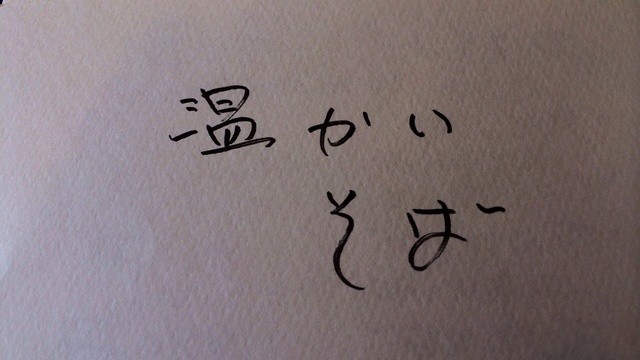 温かい
そば